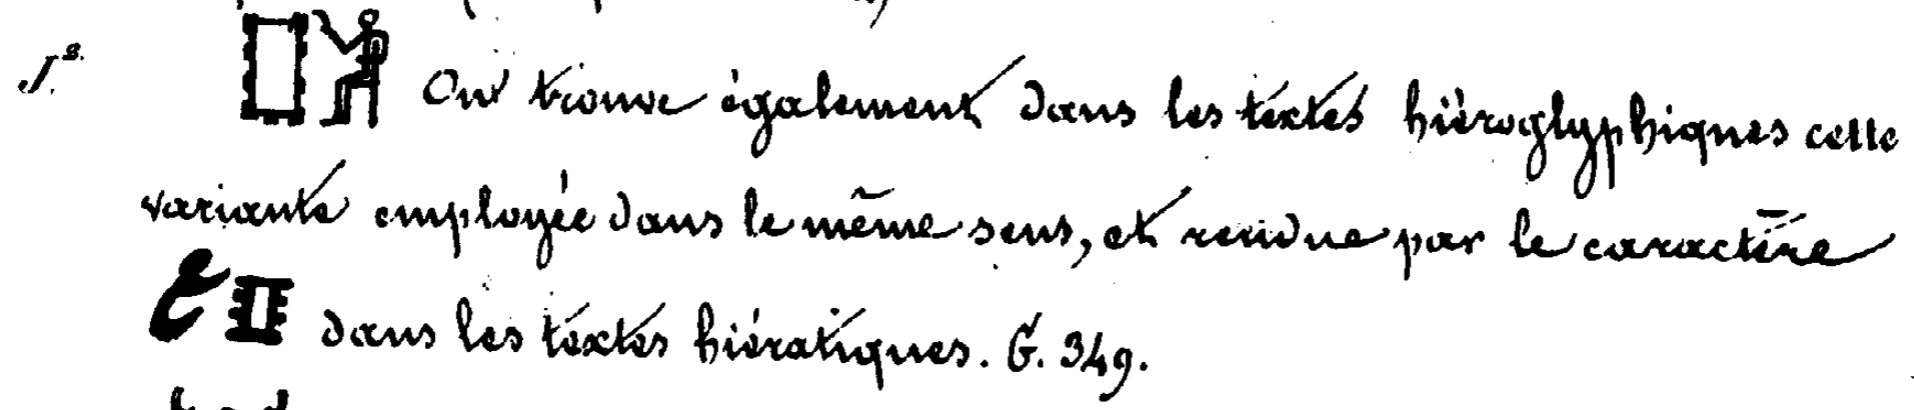 J<sup>s.</sup> On trouve également dans les textes hiéroglyphiques cette
variante employée dans le même sens, et rendue par le caractère
dans les textes hiératiques. G. 349.